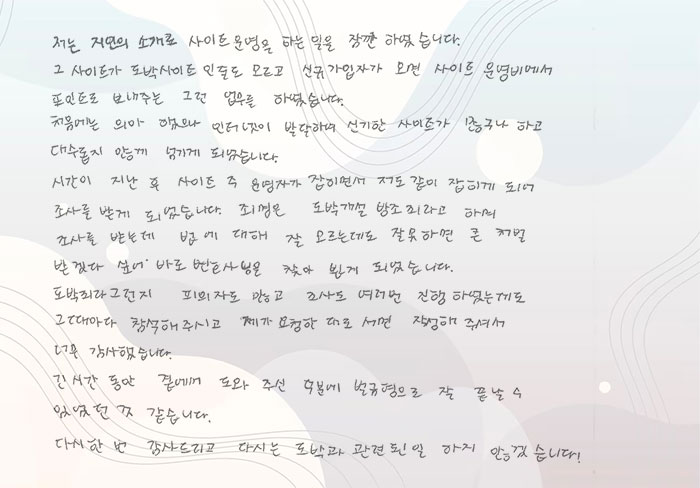 저는 지인의 소개로 사이트운영을 하는일을 잠깐 하였습니다.
그 사이트가 도박사이트인줄도 모르고 신규가입자가 오면 사이트 운영비에서
포인트로 보내주는 그런 업무를 하였습니다.
처음에는 의아 했으나 인터넷이 발달하여 신기한 사이트가 많구나 하고
대수롭지 않게 넘기게 되었습니다.
시간이 지난 후 사이트 주 운영자가 잡히면서 저도같이 잡히게 되어
조사를 받게 되었습니다. 죄명은 도박개설 방조죄라고 하며
조사를 받는데 법에 대해 잘 모르는데도 잘못하면 큰 처벌
받겠다 싶어 바로 변호사님을 찾아 뵙게 되었습니다.
도박죄라그런지 피의자도 많고 조사도 여러번 진행하였는데도
그때마다 참석해주시고 제가요청한대로 서면 작성해주셔서
너무 감사했습니다.
긴시간 동안 곁에서 도와 주신 덕분에 벌금형으로 잘 끝날 수
있었던 것 같습니다.
다시한 번 감사드리고 다시는 도박과 관련된일 하지 않겠습니다!